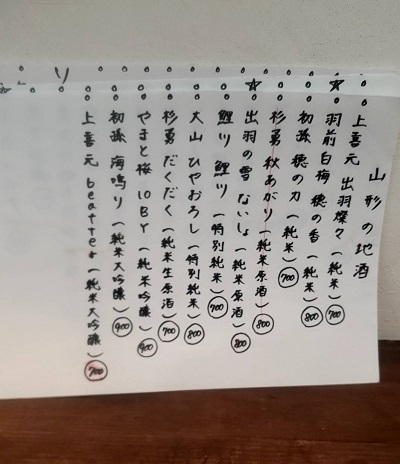 山形の地酒
上喜元 出羽燦々(純米)700
☆羽前白梅 穂の香(純米)800
初孫 穂の力(純米)700
杉勇 秋あがり(純米原酒)800
☆出羽の雪 ないしょ(純米原酒)800
鯉川 鯉川(特別純米)700
大山 ひやおろし(特別純米)800
杉勇 だくだく(純米生原酒)700
やまと桜 10BY(純米吟醸)900
初孫 海鳴り(純米大吟醸)900
上喜元 beatter(純米大吟醸)700
り